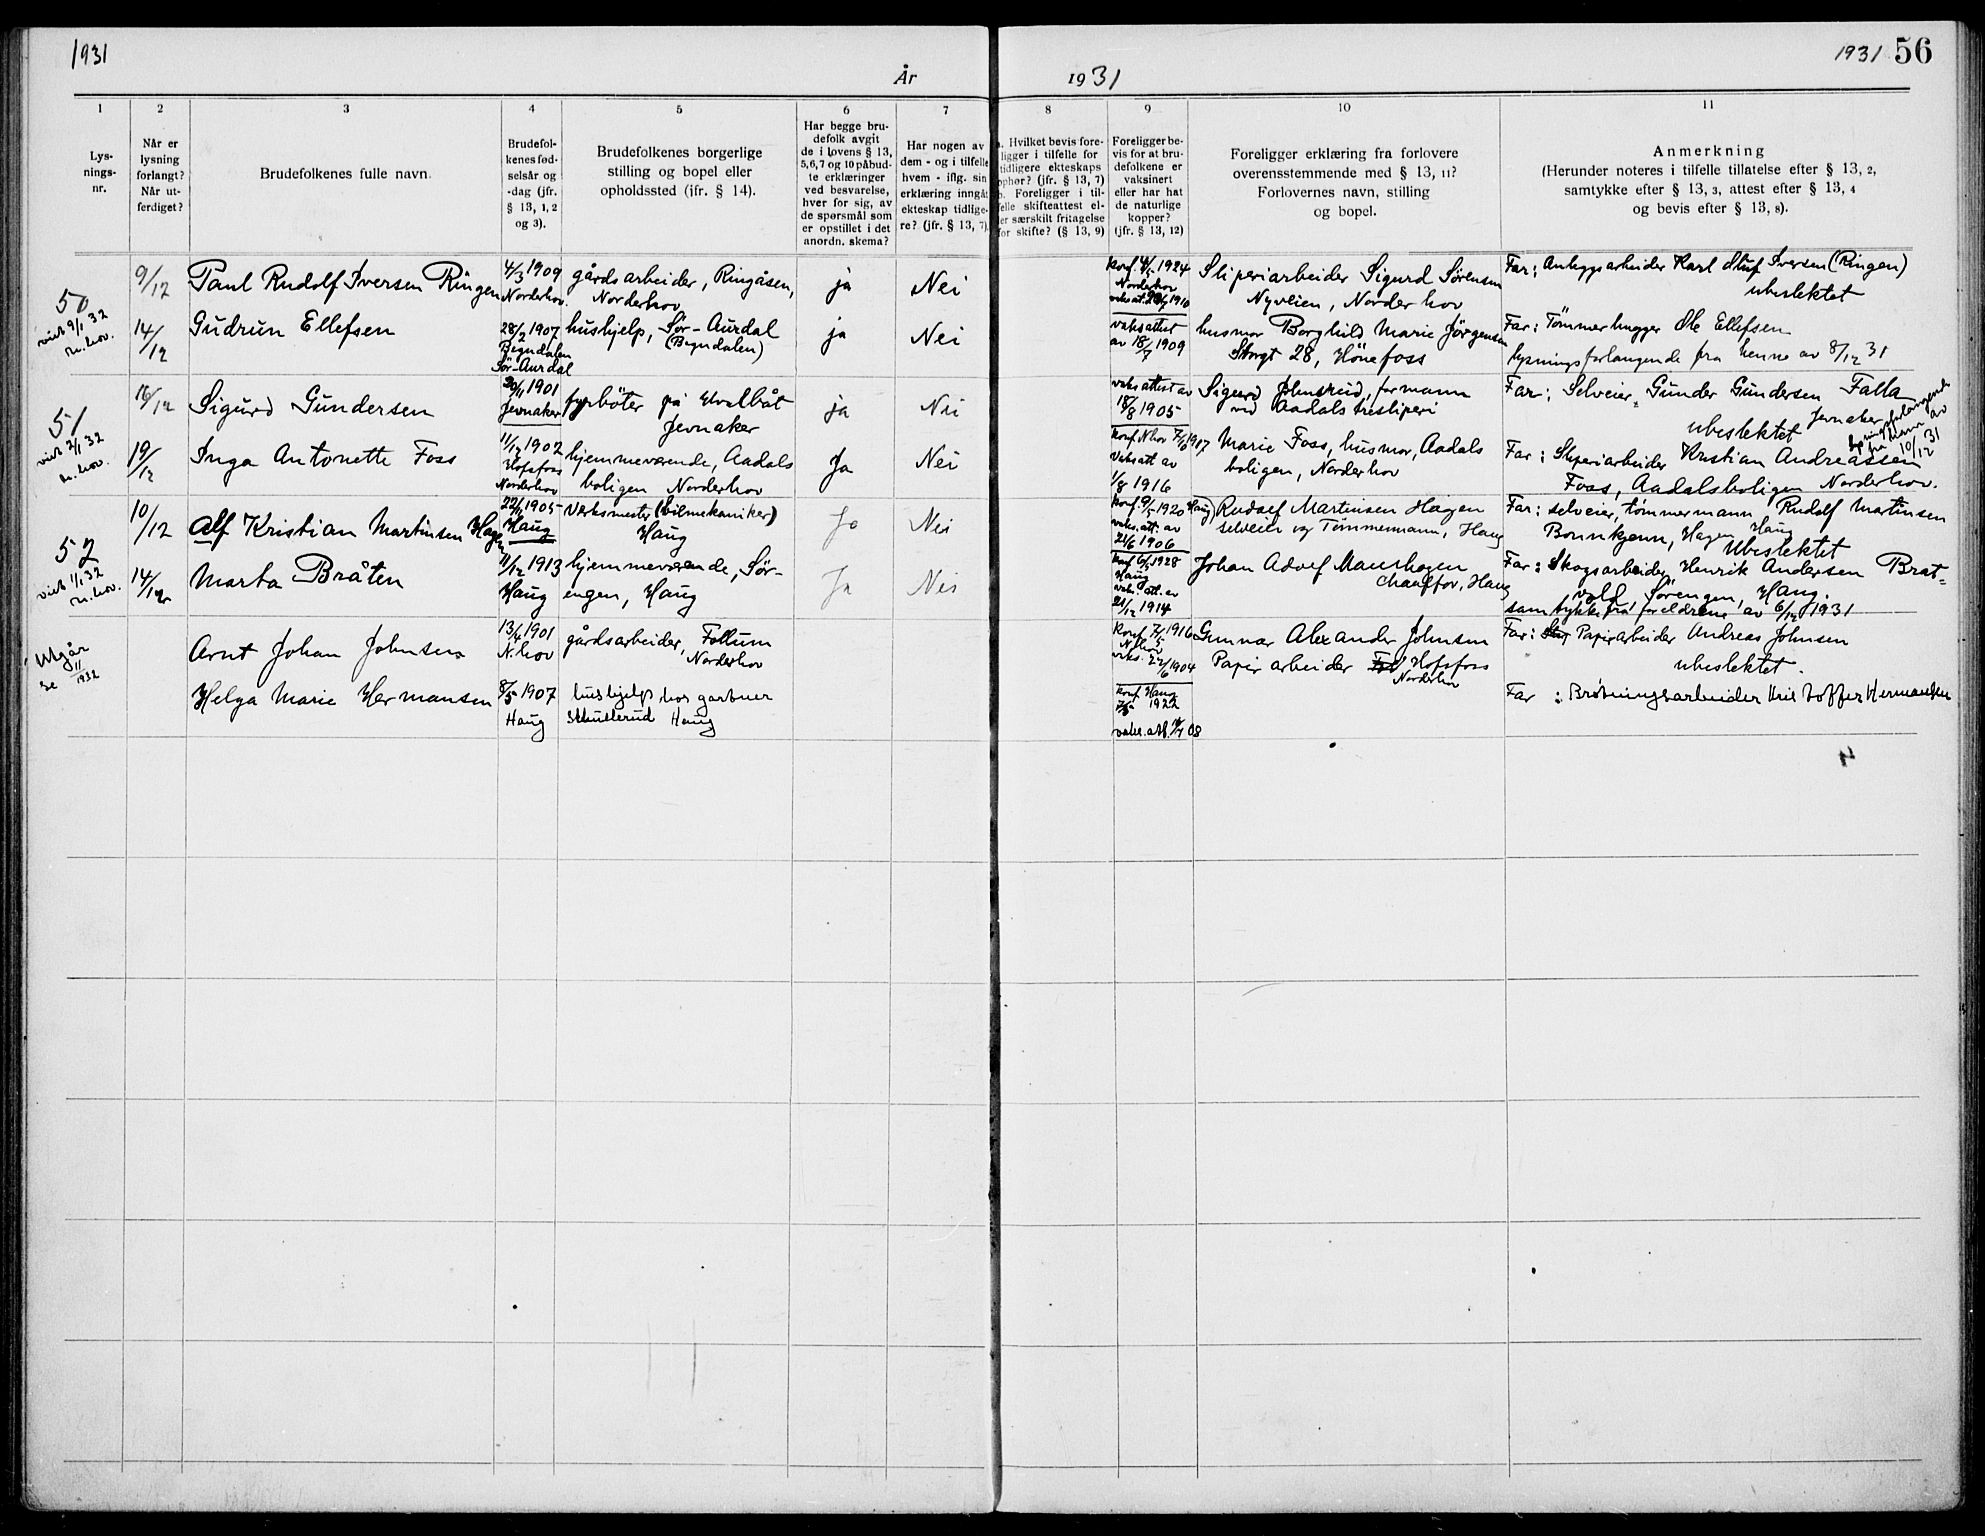 1931
År
1931
1931 56
1
Lys-
nings-
nr.
2
Når er
lysning
forlangt?
Når ut-
ferdiget?
3
Brudefolkenes fulle navn.
4
Brudefol-
kenes fød-
selsår og
-dag (jfr.
§ 13, 1, 2
og 3).
5
Brudefolkenes borgerlige
stilling og bopel eller
opholdssted (jfr. § 14).
6
Har begge bru-
defolk avgit
de i lovens § 13,
5,6,7 og 10 påbud-
te erklæringer
ved besvarelse,
hver for sig, av
de spørsmål som
er opstillet i det
anordn. skema?
7
Har nogen av
dem - og i tilfelle
hvem - iflg. sin
erklæring inngåt
ekteskap tidlige-
re? (jfr. § 13, 7)
8
a. Hvilket bevis fore-
ligger i tilfelle for
tidligere ekteskaps
ophør? (jfr. § 13, 7)
b. Foreligger i til-
felle skifteattest el-
ler særskilt fritagelse
for skifte? (§ 13, 9)
9
Foreligger be-
vis for at bru-
defolkene er
vaksinert
eller har hat
de naturlige
kopper?
(jfr. § 13, 12)
10
Foreligger erklæring fra forlovere
overensstemmende med § 13, 11?
Forlovernes navn, stilling
og bopel.
11
Anmerkning
(Herunder noteres i tilfelle tillatelse efter § 13, 2,
samtykke efter § 13, 3, attest efter § 13, 4
og bevis efter § 13, 8).
50
viet 9/1 32
n.hov.
9/12
Paul Rudolf Iversen Ringen
4/3 1909
Norderhov.
gårdsarbeider, Ringåsen,
Norderhov
ja
Nei
konf. 4/5 1924
Norderhov
vaks.att. 1910
Sliperiarbeider Sigurd Sørensen
Nyveien, Norderhov
Far: Anleggsarbeider Karl Iversen (Ringen)
ubeslektet
14/12
Gudrun Ellefsen
28/2 1907
Begndalen
Sør-Aurdal
hushjelp, Sør-Aurdal
(Begndalen)
ja
Nei
vaksattest
av 18/7 1909
husmor Borghild Marie Jørgensen
Storgt 28, Hönefoss
Far: Tømmerhugger Ole Ellefsen
lysningsforlangende fra henne av 8/12 31
51
viet 2/1 32
n.hov.
16/12
Sigurd Gundersen
20/11 1901
Jevnaker
fyrböter på Hvalbåt
Jevnaker
ja
Nei
vaksattest av
18/8 1905
Sigurd Johnsrud, formann
ved Aadals tresliperi
Far: Selveier, Gunder Gundersen Falla
Jevnaker
ubeslektet
lysningsforlangende
fra ham av
10/12 31
19/12
Inga Antonette Foss
11/12 1902
Hofsfoss
Norderhov
hjemmeværende, Aadals
boligen Norderhov
Ja
Nei
konf. Nhov 7/10 1917
Vaksatt av
1/8 1916
Marie Foss, husmor, Aadals
boligen, Norderhov
Far: Sliperiarbeider Kristian Andreassen
Foss, Aadalsboligen Norderhov.
52
viet 1/1 32
n.hov.
10/12
Alf Kristian Martinsen Hagen
22/11 1905
Haug
Verksmester (bilmekaniker)
Haug
Ja
Nei
konf. 9/5 1920 Haug
vaks.att. av
21/6 1906
Rudolf Martinsen Hagen
selveier og Tømmermann, Haug
Far: selveier, tømmermann Rudolf Martinsen
Bonnkjenn, Hagen Haug
Ubeslektet
14/12
Marta Bråten
11/12 1913
Haug
hjemmeværende, Sør-
engen, Haug
Ja
Nei
konf 6/5 1928
Haug
vaks. att. av
21/12 1914
Johan Adolf Maurhagen
Chauffør, Haug
Far: Skogsarbeider, Henrik Andersen Brat-
vold, Sørengen, Haug.
samtykke fra foreldrene av 6/12 1931
Utgår
se 11/1932
Arnt Johan Johnsen
13/4 1901
N.hov
gårdsarbeider, Follum
Norderhov
konf 7/5 1916
N.hov
vaks. 27/6 1904
Gunnar Alexander Johnsen
Papirarbeider Hofsfoss
Norderhov
Far: Papirarbeider Andreas Johnsen
ubeslektet.
Helga Marie Hermansen
8/5 1907
Haug
hushjelp hos gartner
Haug
konf. Haug
7/5 1922
vaks.att. 08
Far : Brøtningsarbeider Kristoffer Hermansen